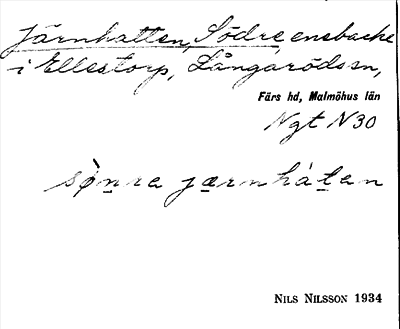 Järnhatten, Södre, enebacke
i Ellestorp, Långaröds sn,
Färs hd, Malmöhus län
Ngt N30
sø̀n̲re jærnhát̲en
NILS NILSSON 1934